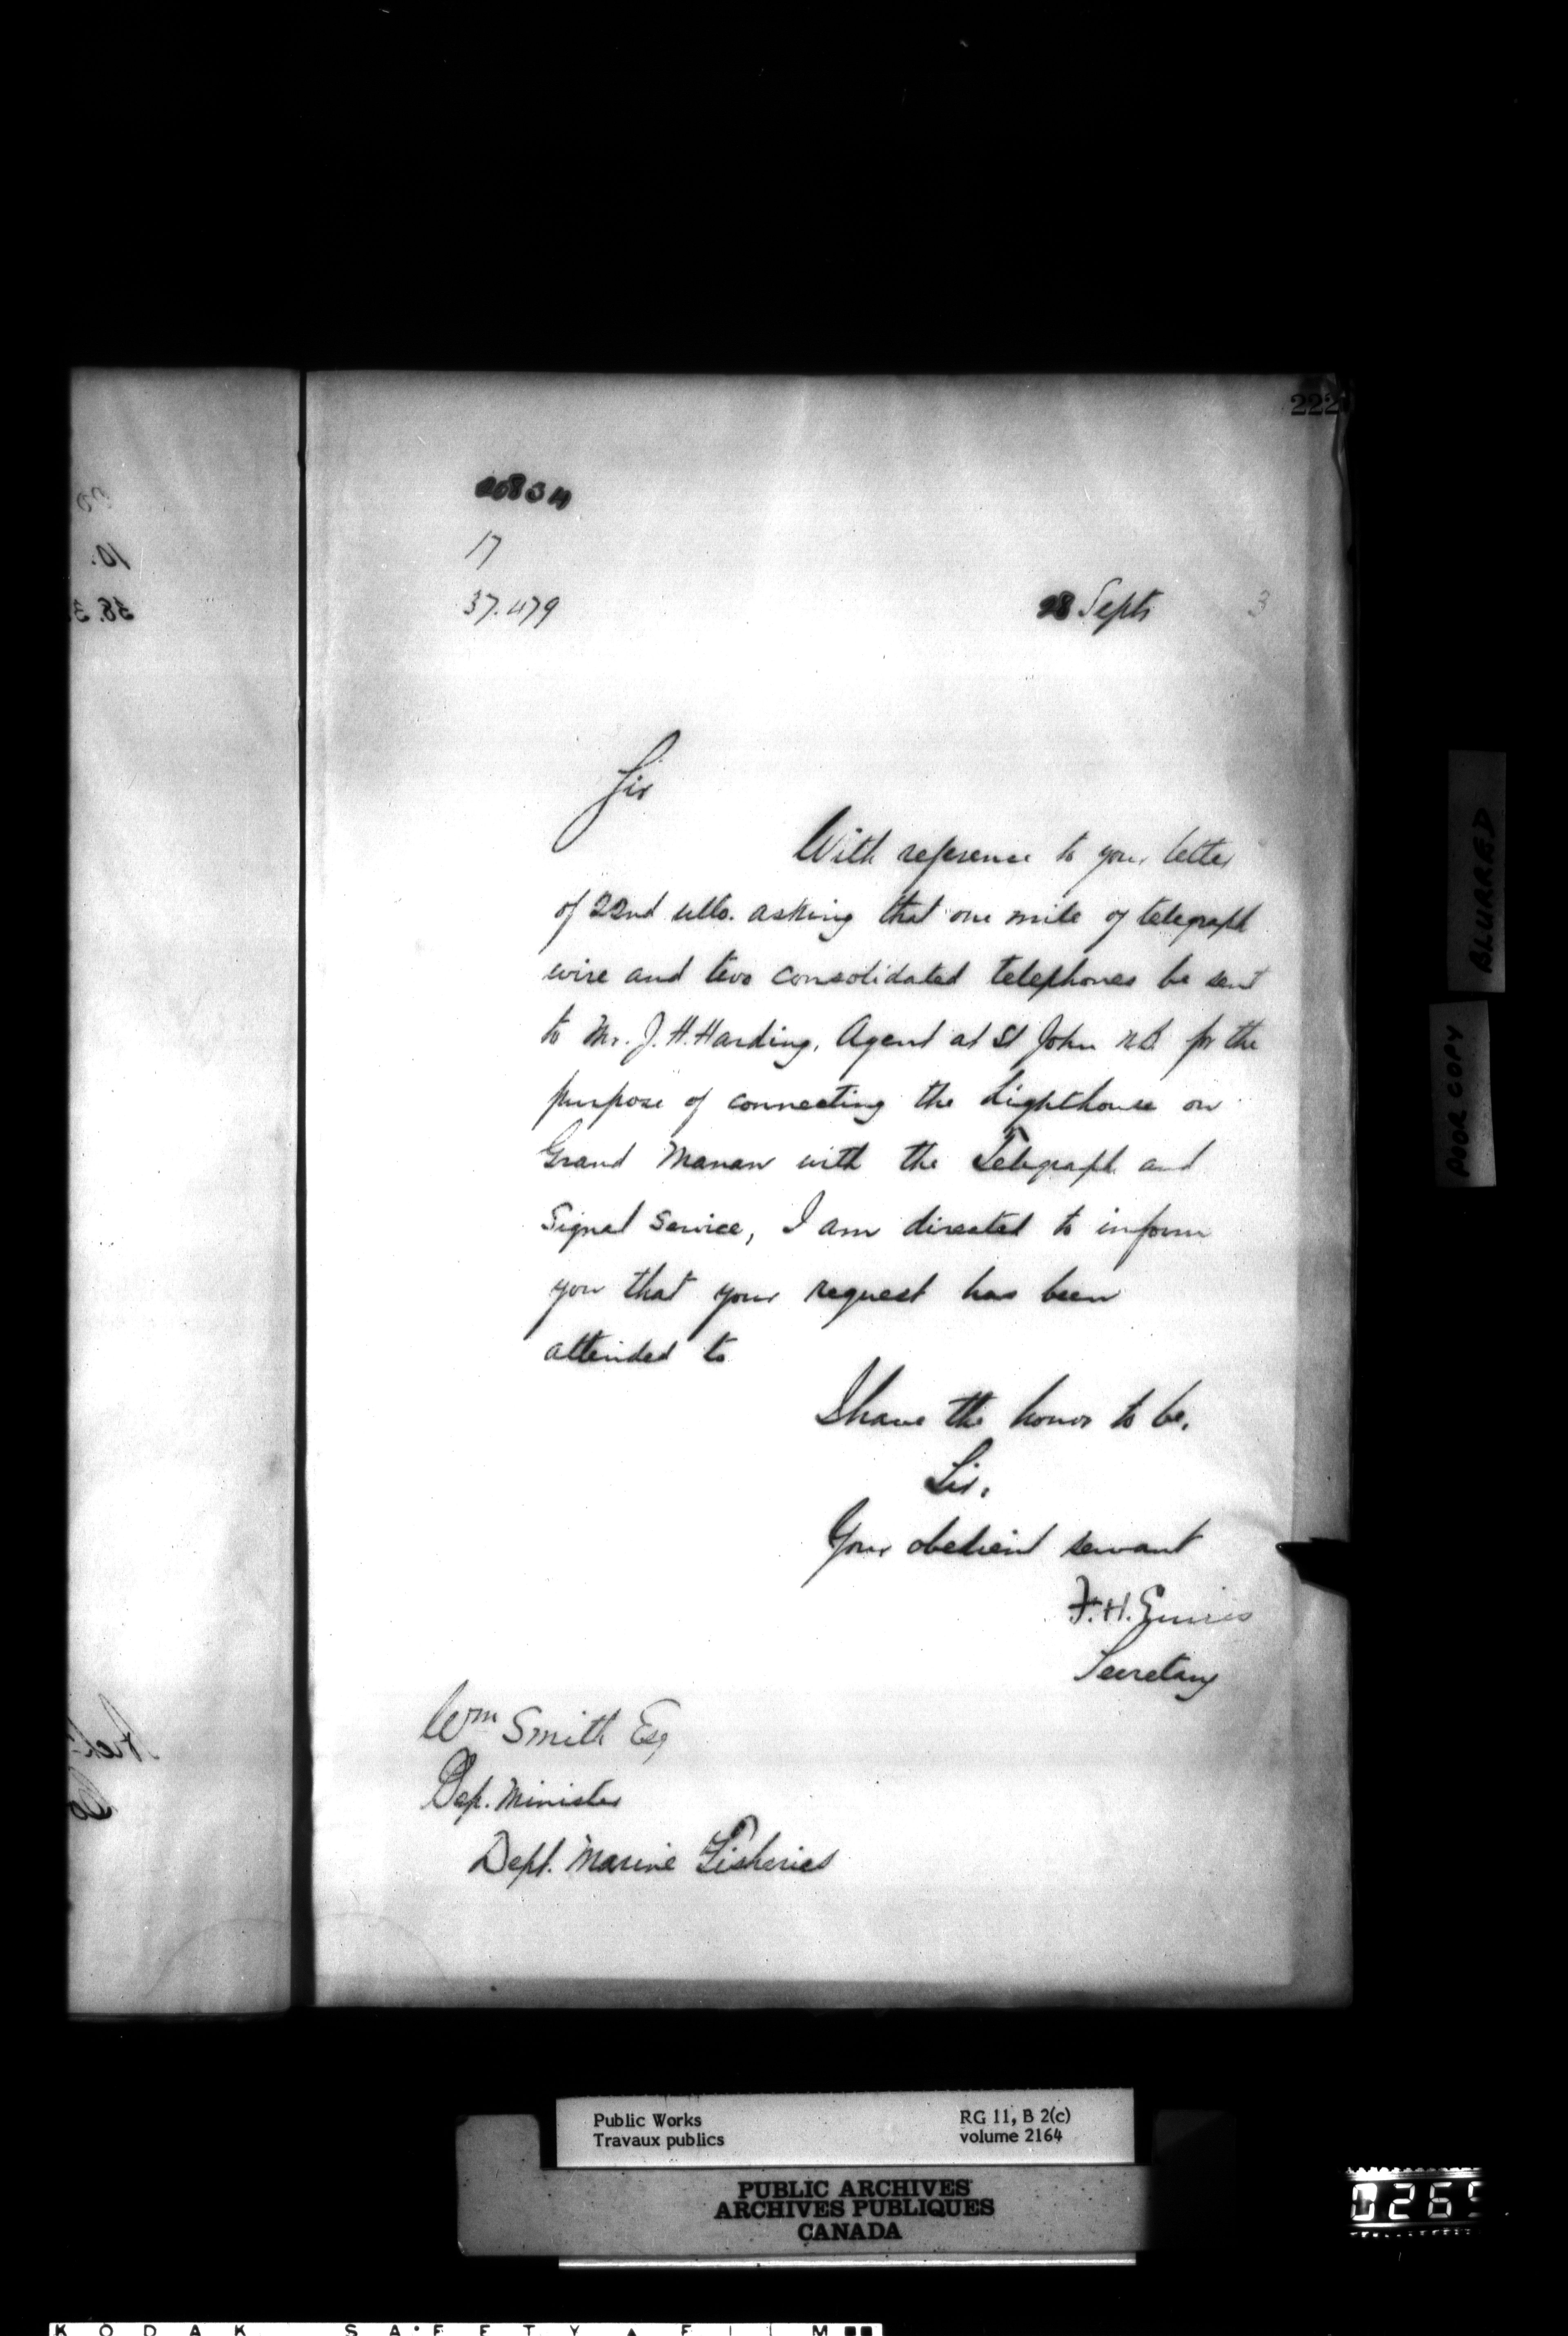 222
20834
17
37.479
28 Septr 3
Sir
With reference to your letter
of 22nd ulto. asking that one mile of telegraph
wire and two consolidated telephones be sent
to Mr. J. H. Harding, Agent at St John N.B. for the
purpose of connecting the Lighthouse on
Grand Manan with the Telegraph and
Signal Service, I am directed to inform
you that your request has been
attended to
I have the honor to be,
Sir,
Your obedient servant
F. H. Ennis
Secretary
Wm Smith Esq
Dep. Minister
Dept. Marine Fisheries
BLURRED
POOR COPY
Public Works
Travaux publics
RG 11, B 2(c)
volume 2164
PUBLIC ARCHIVES
ARCHIVES PUBLIQUES
CANADA
0265
KODAK SAFETY FILM